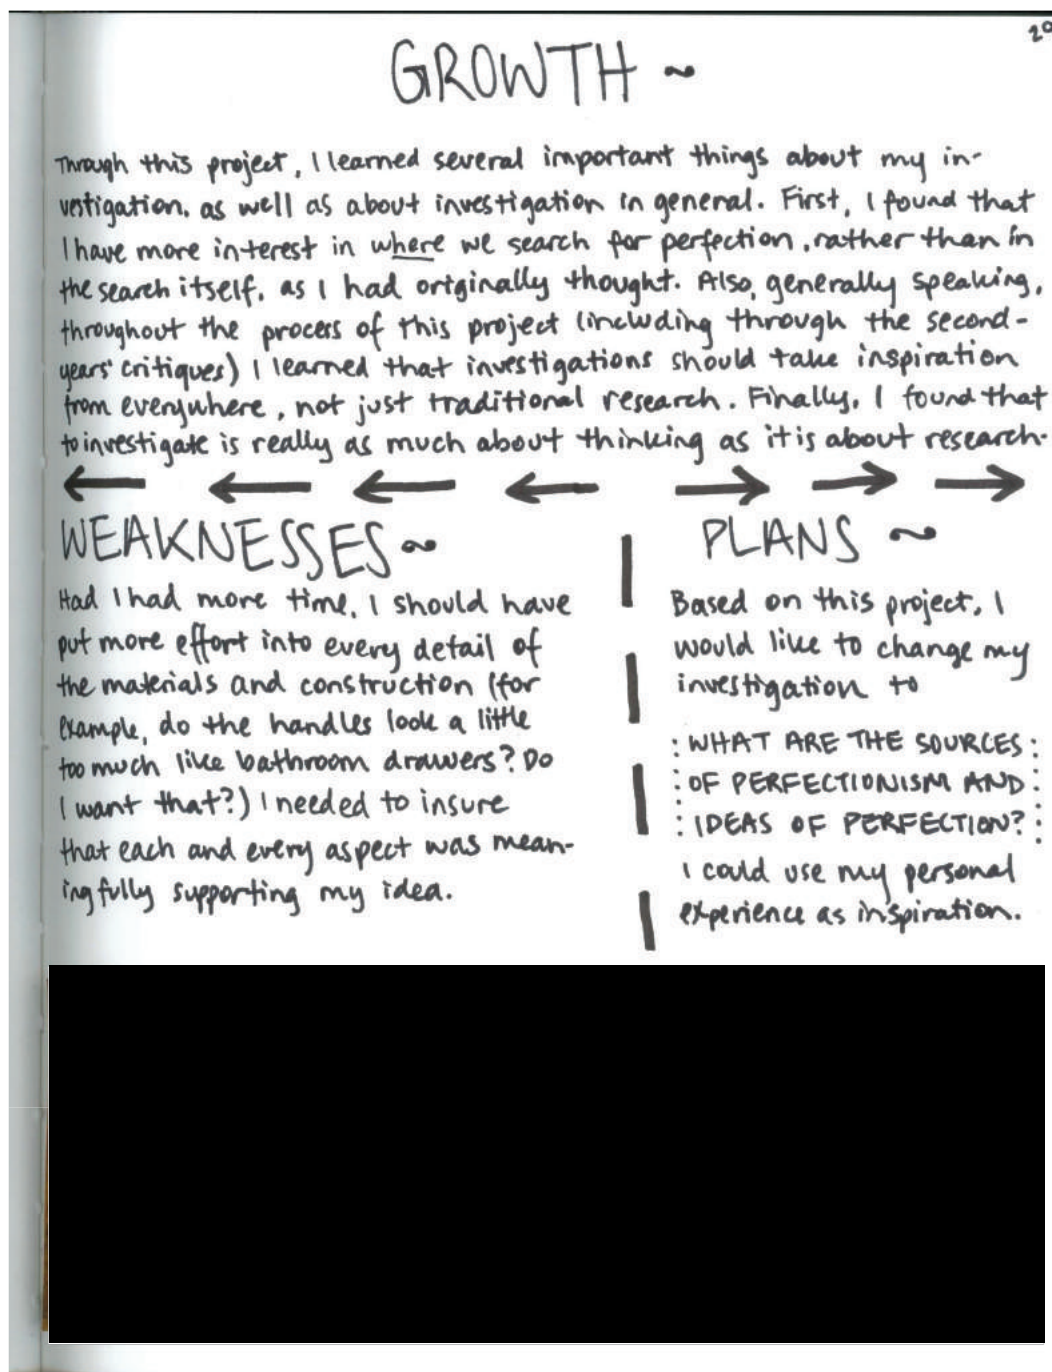 20
GROWTH ~
Through this project, I learned several important things about my in-
vestigation, as well as about investigation in general. First, I found that
I have more interest in where we search for perfection, rather than in
the search itself, as I had originally thought. Also, generally speaking,
throughout the process of this project (including through the second-
years' critiques) I learned that investigations should take inspiration
from everywhere, not just traditional research. Finally, I found that
to investigate is really as much about thinking as it is about research.
WEAKNESSES ~
Had I had more time, I should have
put more effort into every detail of
the materials and construction (for
example, do the handles look a little
too much like bathroom drawers? Do
I want that?) I needed to insure
that each and every aspect was mean-
ingfully supporting my idea.
PLANS ~
Based on this project, I
would like to change my
investigation to
: WHAT ARE THE SOURCES :
: OF PERFECTIONISM AND :
: IDEAS OF PERFECTION? :
I could use my personal
experience as inspiration.